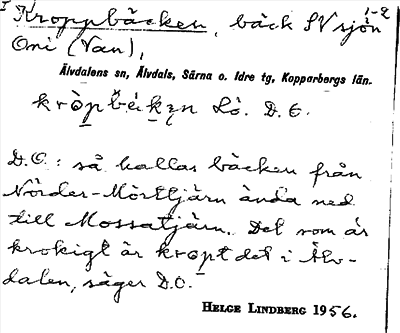 Kroppbäcken, bäck SV sjön 1-2
Omi (Van),
Älvdalens sn, Älvdals, Särna o. Idre tg, Kopparbergs län.
D.O.: så kallas bäcken från
Nörder-Mörttjärn ända ned
till Mossatjärn. Det som är
krokigt är kropt det i Älv-
dalen, säger D.O.
HELGE LINDBERG 1956.